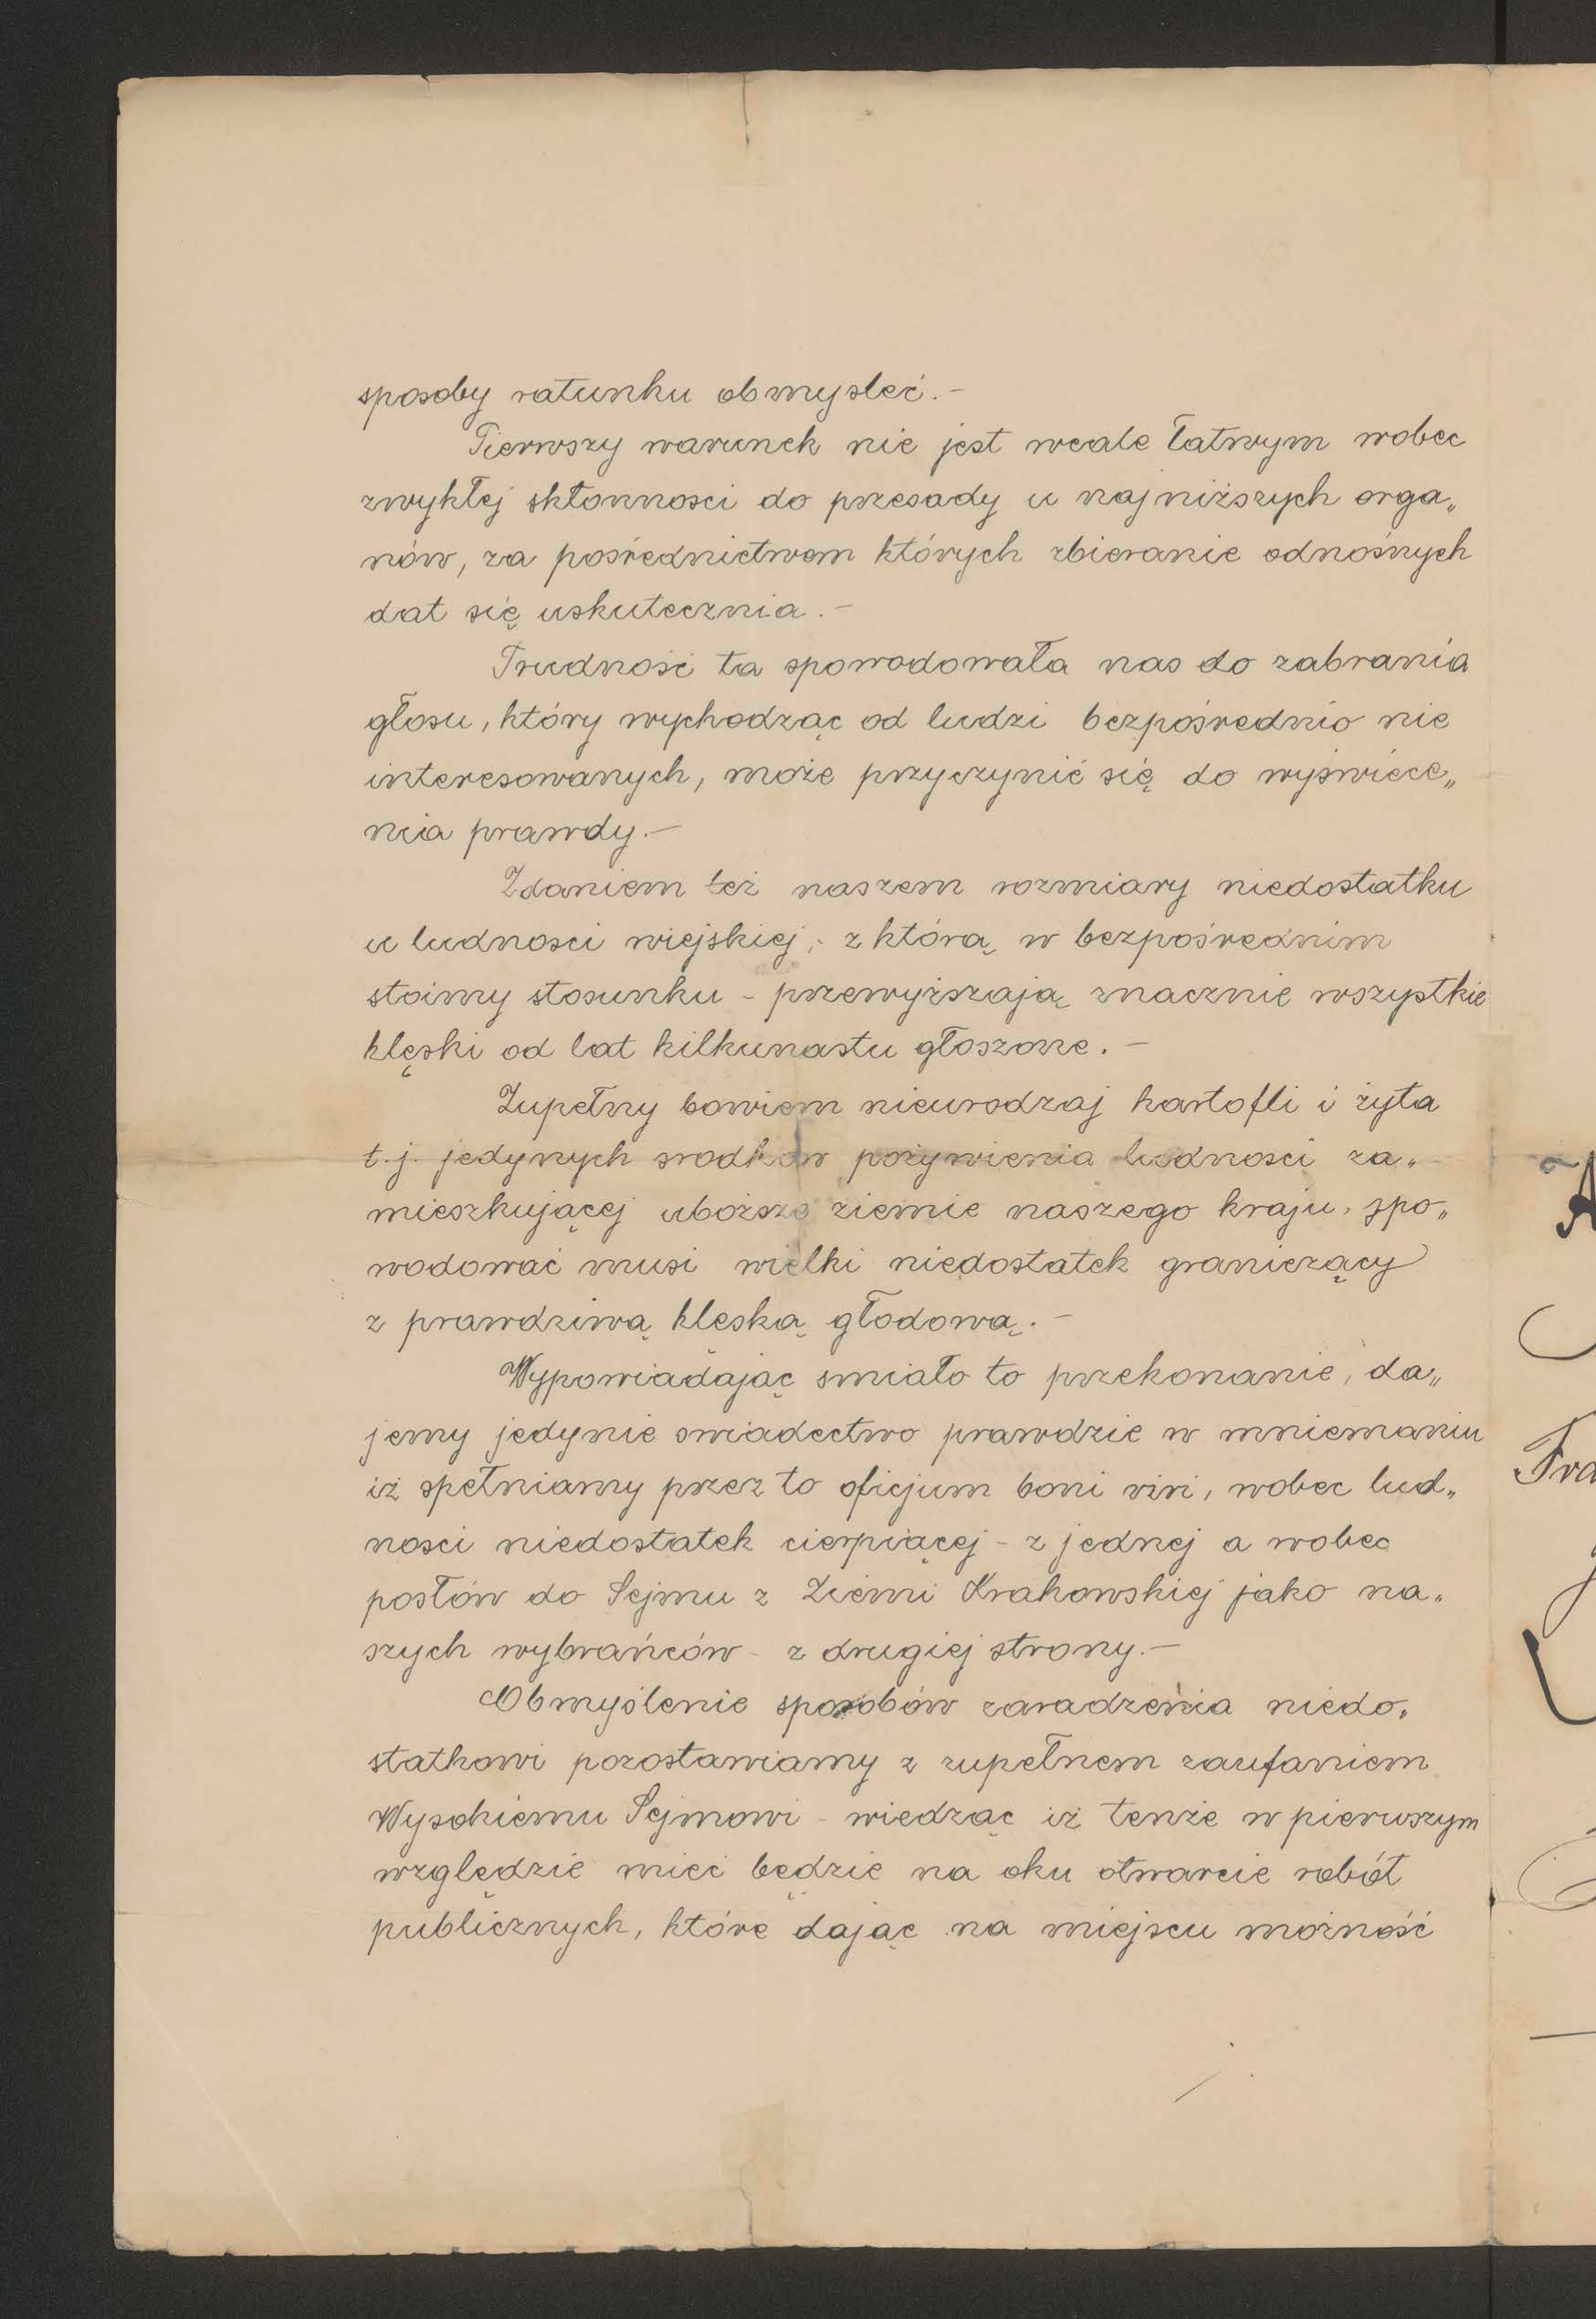 sposoby ratunku obmysleć.-
Pierwszy warunek nie jest wcale łatwym wobec
zwykłej skłonnosci do przesady u najniższych orga„
nów, za pośrednictwem których zbieranie odnośnych
dat się uskutecznia.-
Trudność ta spowodowała nas do zabrania
głosu, który wychodząc od ludzi bezpośrednio nie
interesowanych, może przyczynić się do wyświece„
nia prawdy.-
Zdaniem też naszem rozmiary niedostatku
u ludnosci wiejskiej, z którą w bezpośrednim
stoimy stosunku - przewyższają znacznie wszystkie
klęski od lat kilkunastu głoszone.-
Zupełny bowiem nieurodzaj kartofli i żyta
t.j. jedynych srodków pożywienia ludnosci za„
mieszkującej uboższe ziemie naszego kraju, spo„
wodować musi wielki niedostatek graniczący
z prawdziwą klęską głodową.-
Wypowiadając smiało to przekonanie, da„
jemy jedynie swiadectwo prawdzie w mniemaniu
iż spełniamy przez to oficjum boni viri, wobec lud„
nosci niedostatek cierpiącej - z jednej a wobec
posłów do Sejmu z Ziemi Krakowskiej jako na„
szych wybrańców - z drugiej strony.-
Obmyślenie sposobów zaradzenia niedo„
statkowi pozostawiamy z zupełnem zaufaniem
Wysokiemu Sejmowi - wiedząc iż tenże w pierwszym
względzie mieć będzie na oku otwarcie robót
publicznych, które dając na miejscu możność